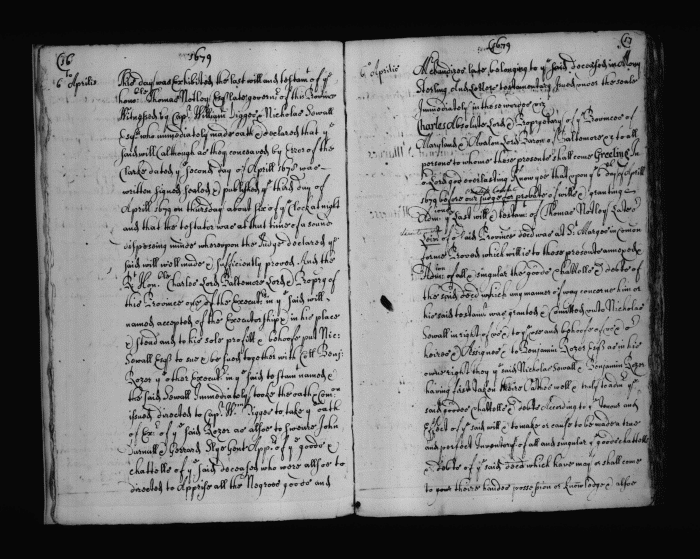 16
1679
6to Aprilis
This day was exhibited the last will and testamt. of ye
honoble Thomas Notley Esqr late governr. of this Province
Witnessed by Capt. William Digges & Nicholas Sewall
Esqrs who immediately made oath & declared that ye
said will (although as they conceaved by Error of the
Clarke dated ye second day of Aprill 1678 was
written signed sealed & published ye third day of
Aprill 1679 on thursday about six of ye Clock at night
and that the testator was at that time of a sound
disposeing minde whereupon the Judge declared ye
said will well made & sufficiently proved. And the
Rt Honble Charles Lord Baltemore Lord & Propry of
this Province one of the Executrs in ye said will
named accepted of the Executorship & in his place
& stead and to his sole profitt & behoofe put Nic:
Sewall Esqr to sue & be sued together with Coll Benj:
Rozer ye other Executr. in ye said testamt named &
the said Sewall Immediately tooke the oath Com̅on
issued directed to Capt. Wm Digges to take ye oath
of Exr. of ye said Rozer as alsoe to sweare John
Darnall & Gerrard Slye Gent Apprs. of ye goods &
chattells of ye said deceased who were alsoe to
directed to Apprise all the Negroes goods and
1679
17
6o Aprilis
Mchandizes late belonging to ye said deceased in
Sterling and Letters testamentary Issued under the seale
Immediately in these wordes viz
Charles Absolute Lord & Propretary of ye Provinces of
Maryland & Avalon Lord Baron of Baltemore &c to all
persons to whome these presents shall come Greeting In
or Lord god everlasting Know yee that upon ye 6 day of Aprill
1679 before our Judge for probate of wills & granting
Adm: ye Last will & testamt. of Thomas Notley Late
of or said Province decd was at St. Maryes in com̅on
forme Proved which will is to these presents annexed &
Adm: of all & singular the goods Chattells & debts of
the said decd which any manner of way concerne him or
his said testamt was granted & com̅itted unto Nicholas
Sewall in right of
heires & Assignes & to Benjamin Rozer Esqr as in his
owne right they ye said Nicholas Sewall & Benjamin Rozer
having first taken theire Oathes well & truly to adm ye
said goodes Chattells & debts According to ye tenour and
Effect of ye said will & to make or cause to be made a true
and perfect Inventory of all and singular ye goods chattells
& debts of ye said decd which have may or shall come
to your theire handes possession or knowledge & alsoe